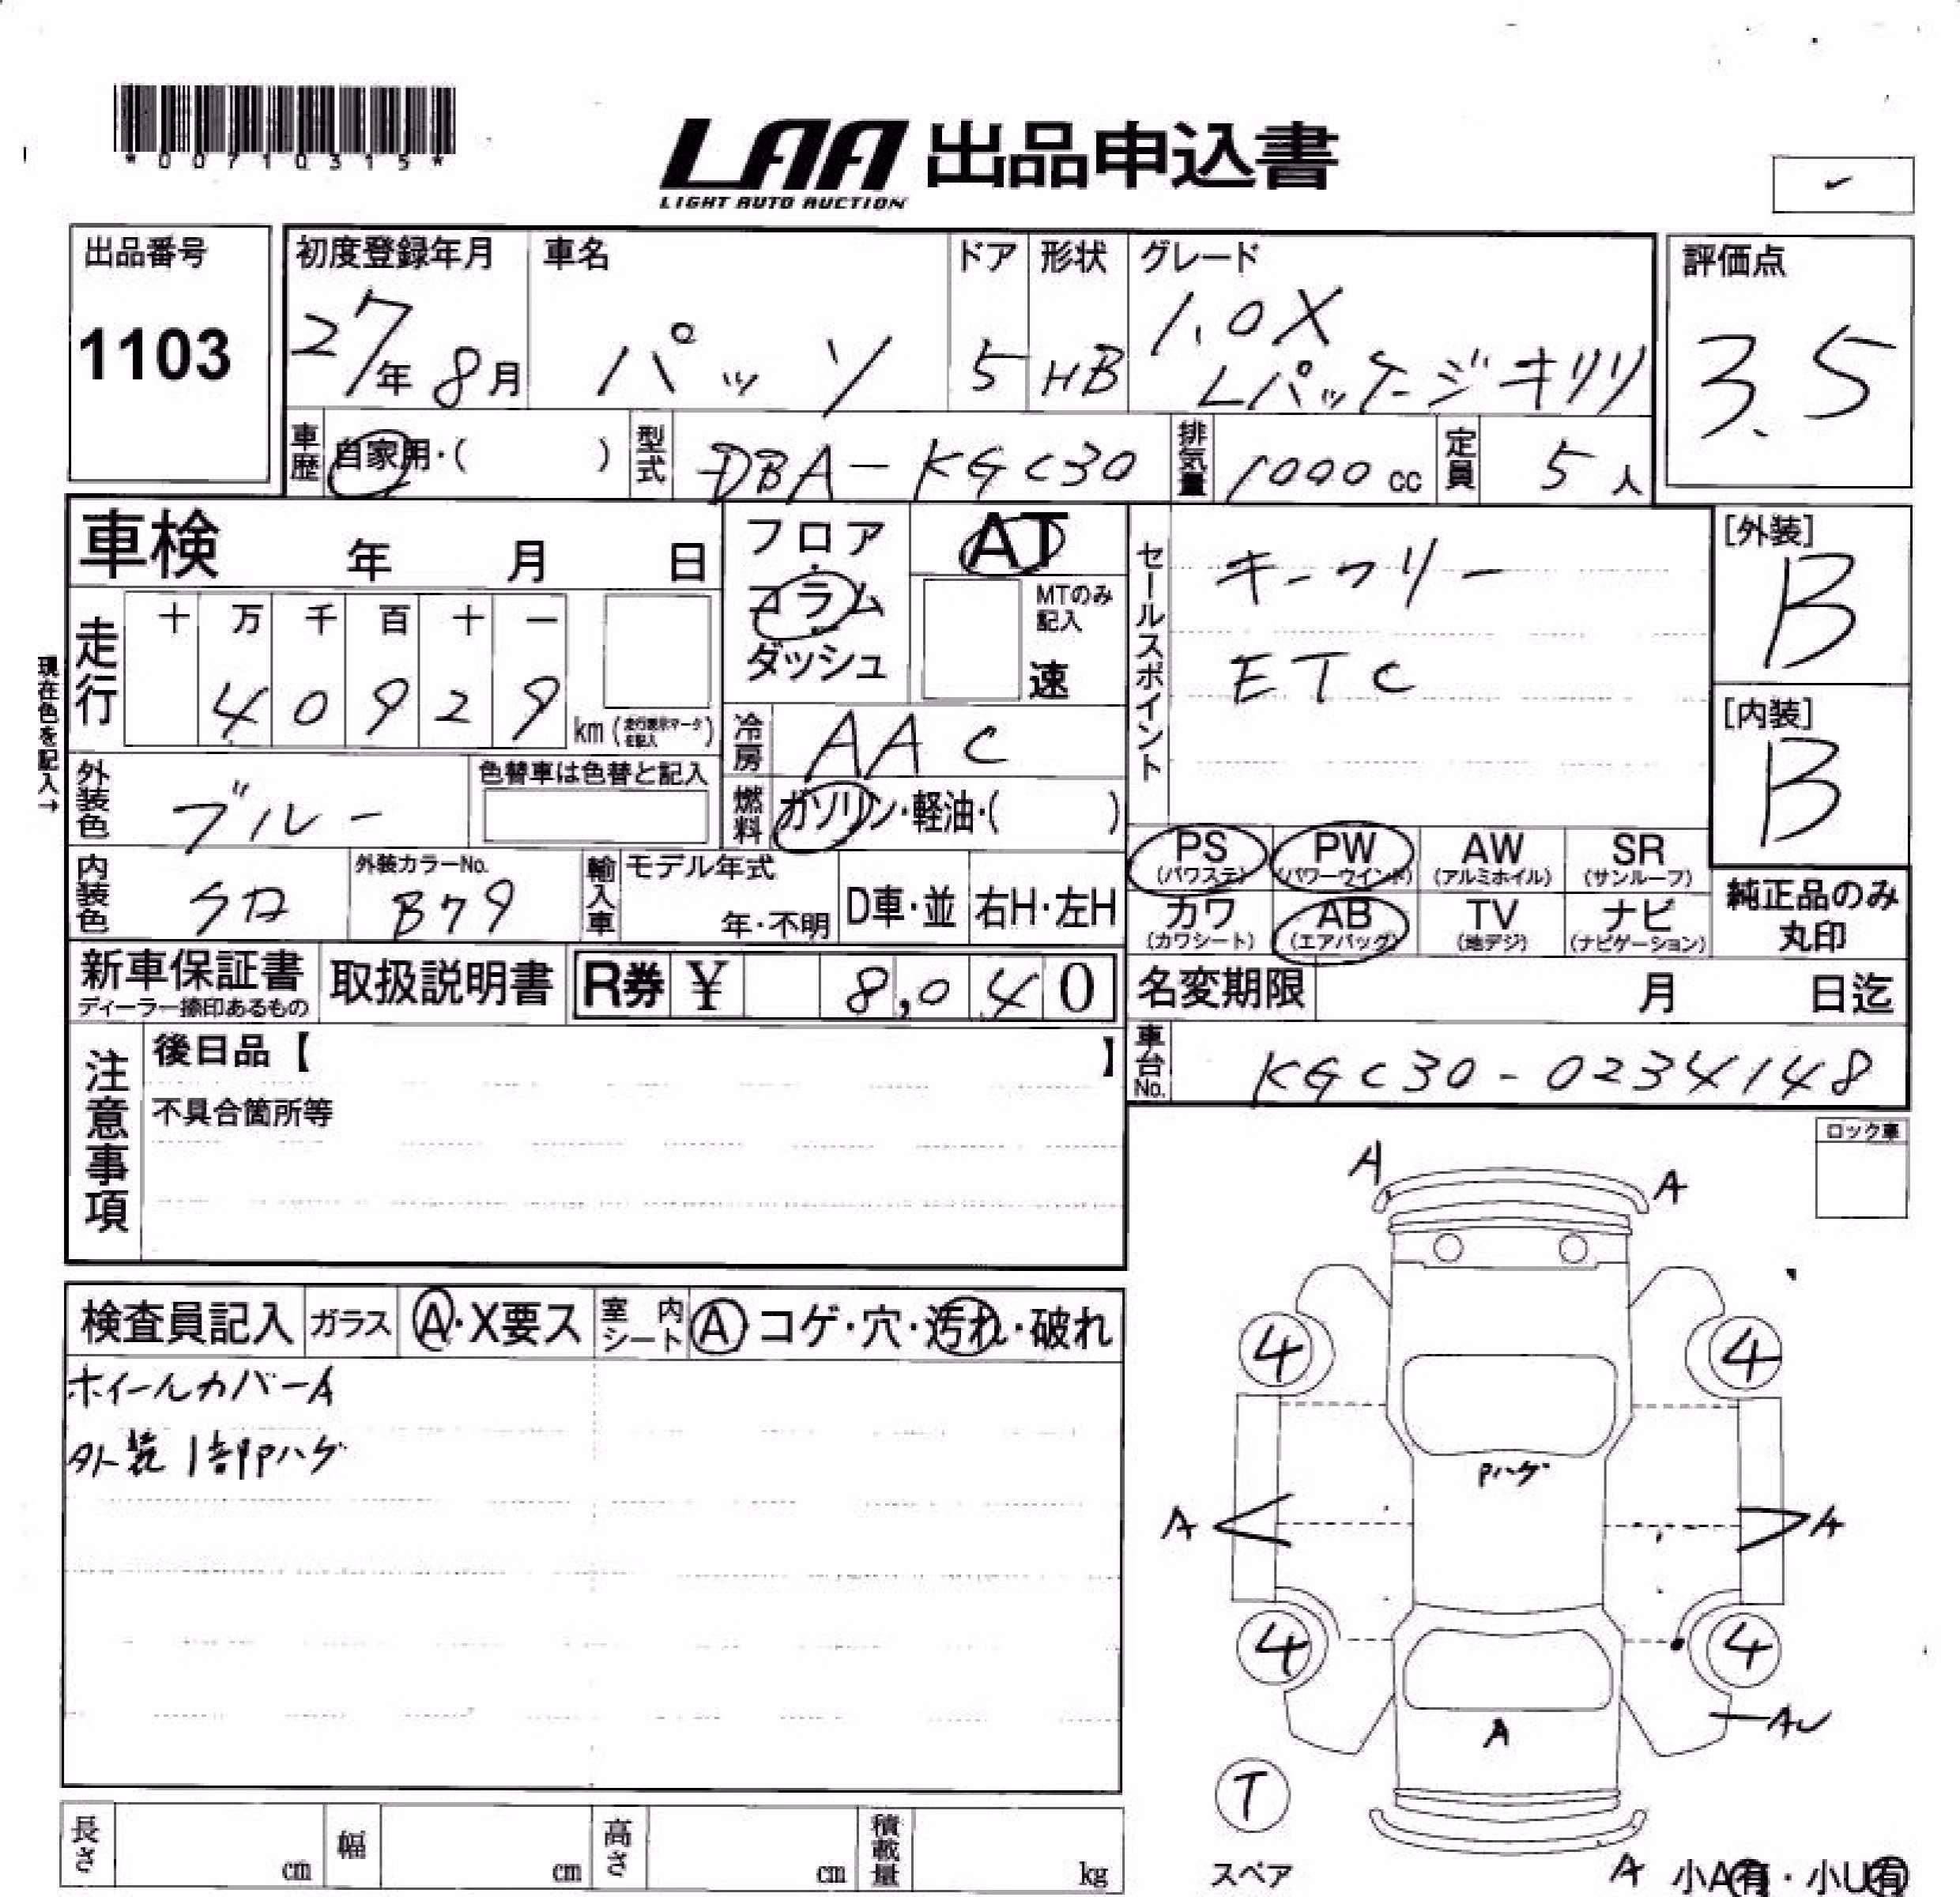 *00710315*
LAA 出品申込書
LIGHT AUTO AUCTION
出品番号
1103
初度登録年月
27年 8月
車名
パッソ
ドア
5
形状
HB
グレード
1.0X
Lパッケージキリリ
評価点
3.5
車歴
自家用・( )
型式
DBA-KGC30
排気量
1000 cc
定員
5人
車検 年 月 日
フロア
コラム
ダッシュ
AT
MTのみ
記入
速
セールスポイント
キーフリー
ETC
[外装]
B
[内装]
B
現在色を記入→
走行
十 万 千 百 十 一
4 0 9 2 9
km (走行表示マークを記入)
冷房
AAC
外装色
ブルー
色替車は色替と記入
燃料
ガソリン・軽油・( )
内装色
クロ
外装カラーNo.
B79
輸入車
モデル年式
年・不明
D車・並
右H・左H
PS
(パワステ)
PW
(パワーウインド)
AW
(アルミホイル)
SR
(サンルーフ)
カワ
(カワシート)
AB
(エアバッグ)
TV
(地デジ)
ナビ
(ナビゲーション)
純正品のみ
丸印
新車保証書
ディーラー捺印あるもの
取扱説明書
R券 ¥ 8,040
名変期限 月 日迄
車台No.
KGC30-0234148
注意事項
後日品【 】
不具合箇所等
ロック車
検査員記入
ガラス
A・X要ス
室内シート
A コゲ・穴・汚れ・破れ
ホイールカバーA
外装1部Pハゲ
A
A
4
4
Pハゲ
A
A
4
4
A
AU
T
スペア
A
小A有・小U有
長さ cm
幅 cm
高さ cm
積載量 kg